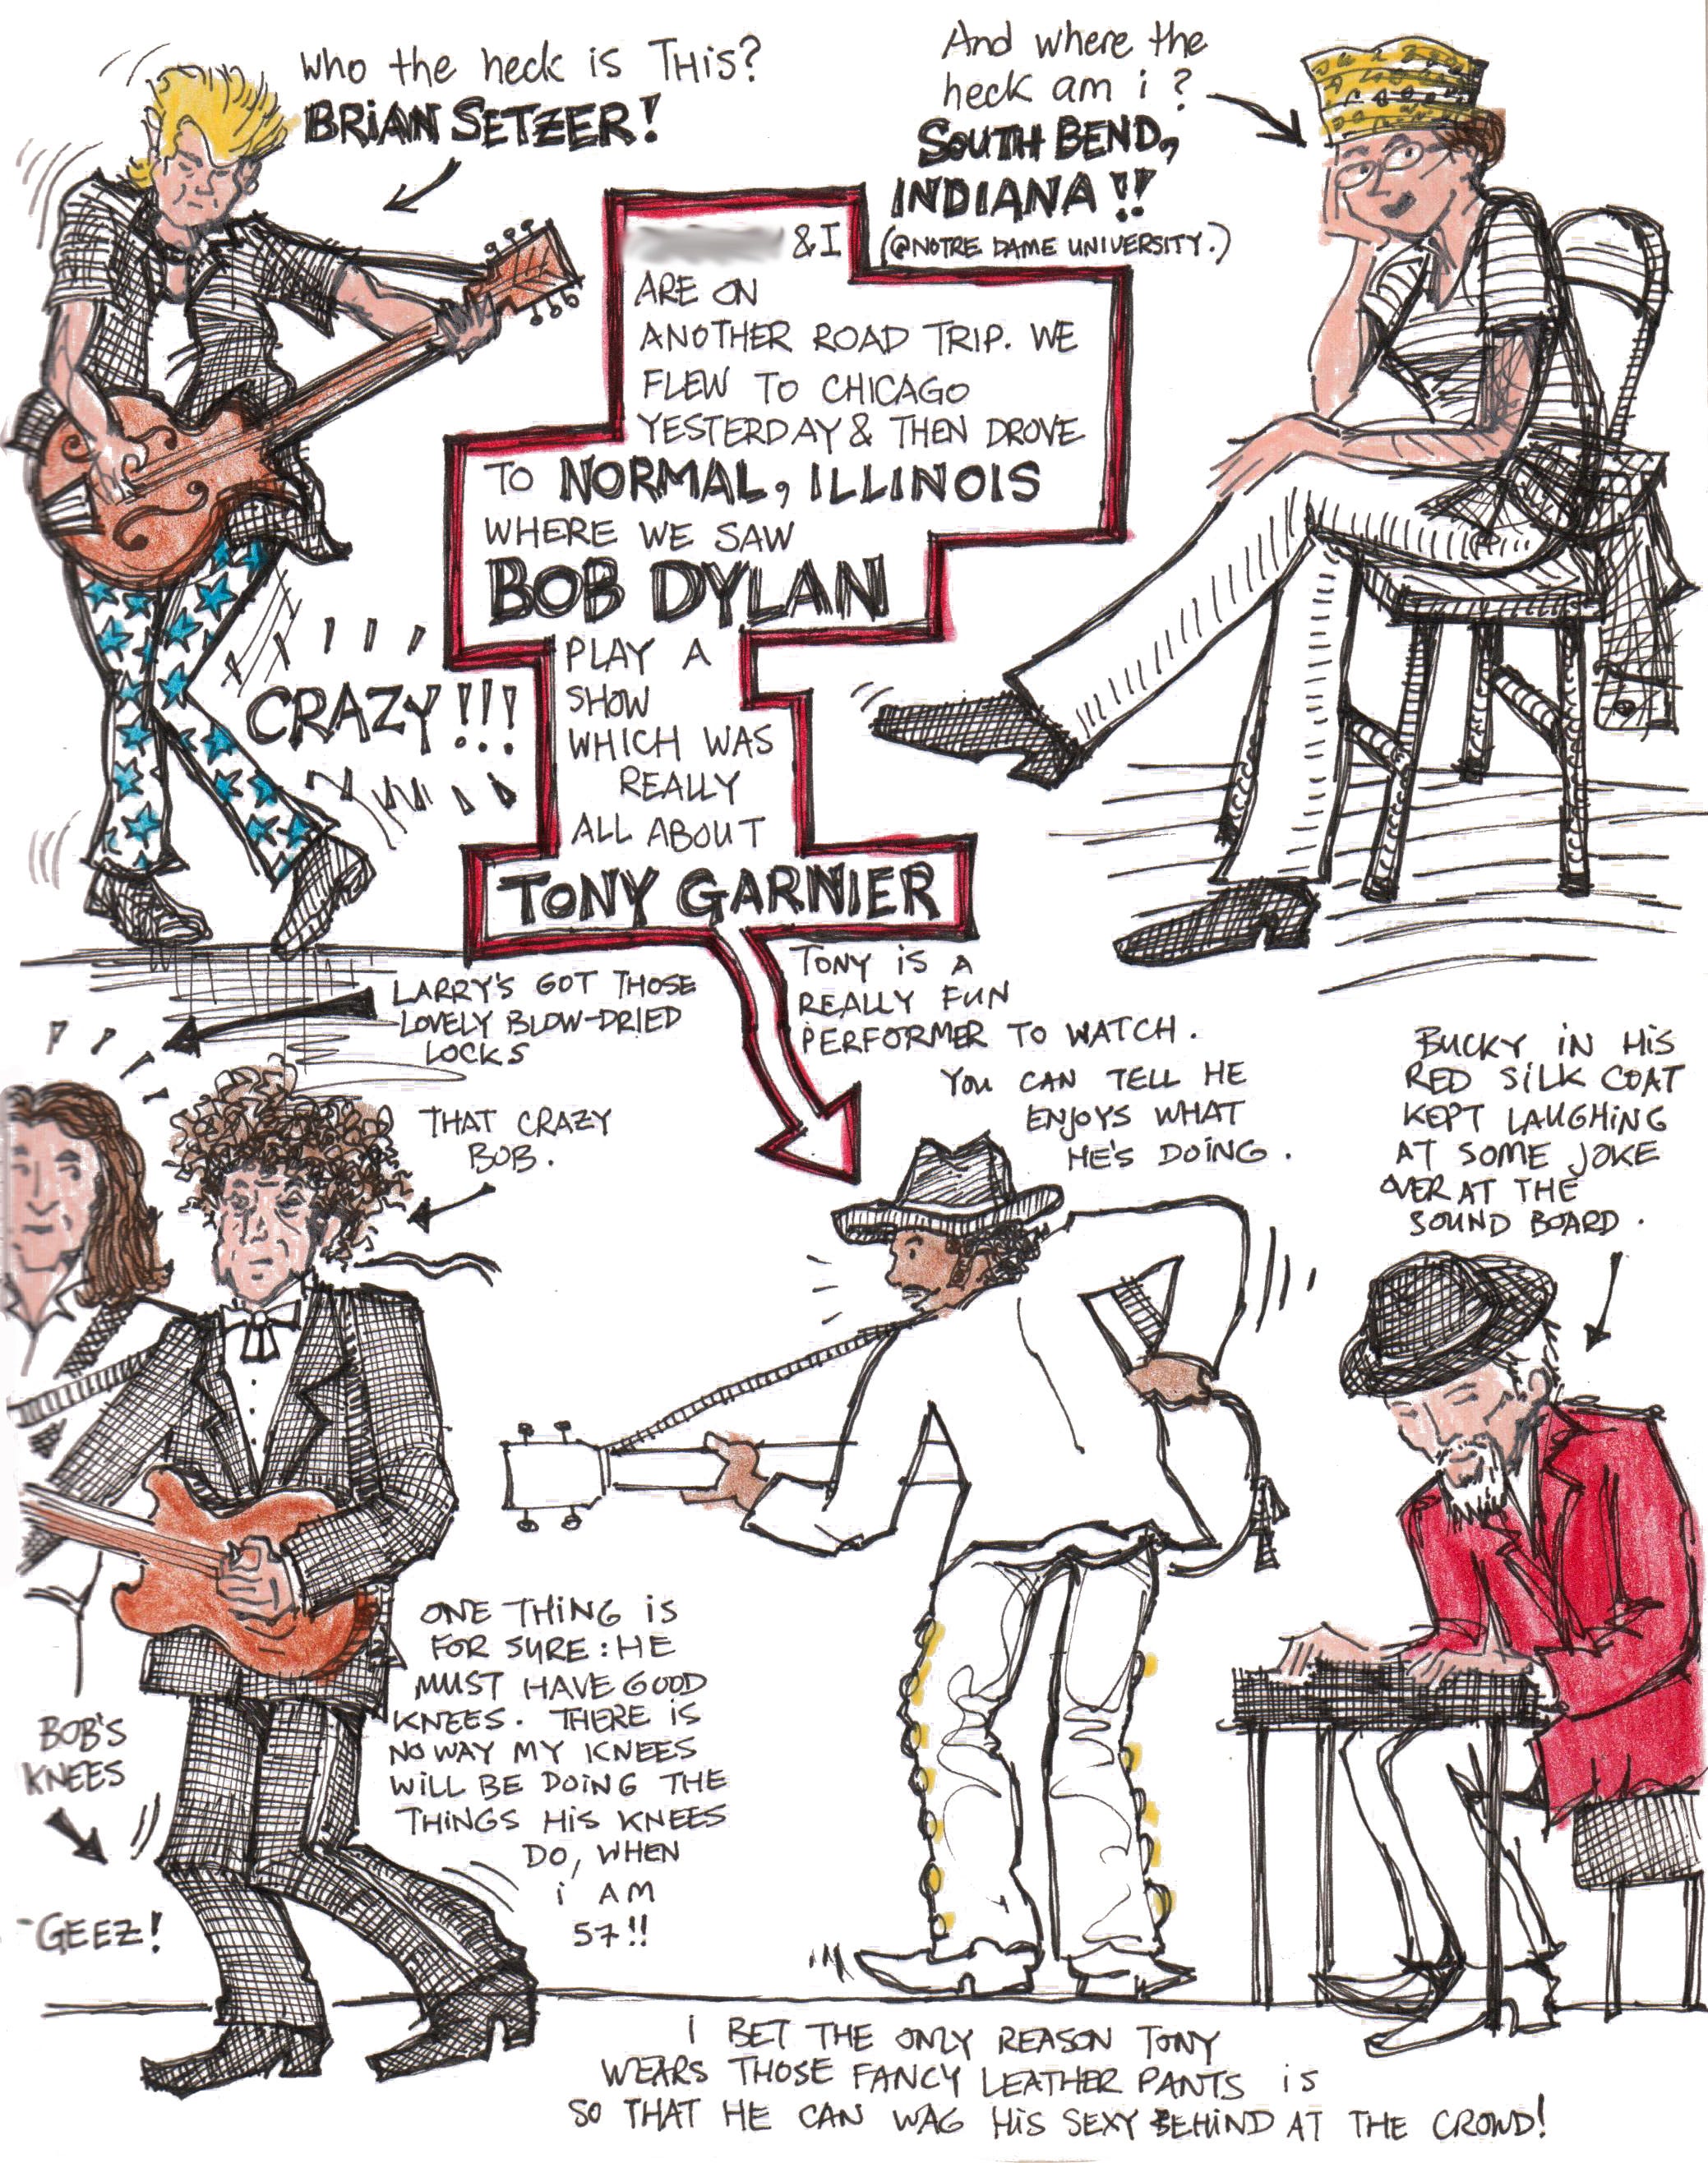 Who the heck is THis?
BRiAN SETZER!
And where the
heck am i?
SOUTH BEND,
INDIANA!!
(@NOTRE DAME UNIVERSITY.)
& I
ARE ON
ANOTHER ROAD TRIP. WE
FLEW TO CHICAGO
YESTERDAY & THEN DROVE
TO NORMAL, ILLINOIS
WHERE WE SAW
BOB DYLAN
PLAY A
SHOW
WHICH WAS
REALLY
ALL ABOUT
TONY GARNIER
CRAZY!!!
TONY iS A
REALLY FUN
PERFORMER TO WATCH.
YOU CAN TELL HE
ENJOYS WHAT
HE'S DOiNG.
LARRY'S GOT THOSE
LOVELY BLOW-DRIED
LOCKS
THAT CRAZY
BOB.
BUCKY iN HiS
RED SiLK COAT
KEPT LAUGHiNG
AT SOME JOKE
OVER AT THE
SOUND BOARD.
ONE THiNG iS
FOR SURE: HE
MUST HAVE GOOD
KNEES. THERE iS
NO WAY MY KNEES
WiLL BE DOiNG THE
THiNGS HiS KNEES
DO, WHEN
i AM
57!!
BOB'S
KNEES
GEEZ!
I BET THE ONLY REASON TONY
WEARS THOSE FANCY LEATHER PANTS iS
SO THAT HE CAN WAG HiS SEXY BEHiND AT THE CROWD!